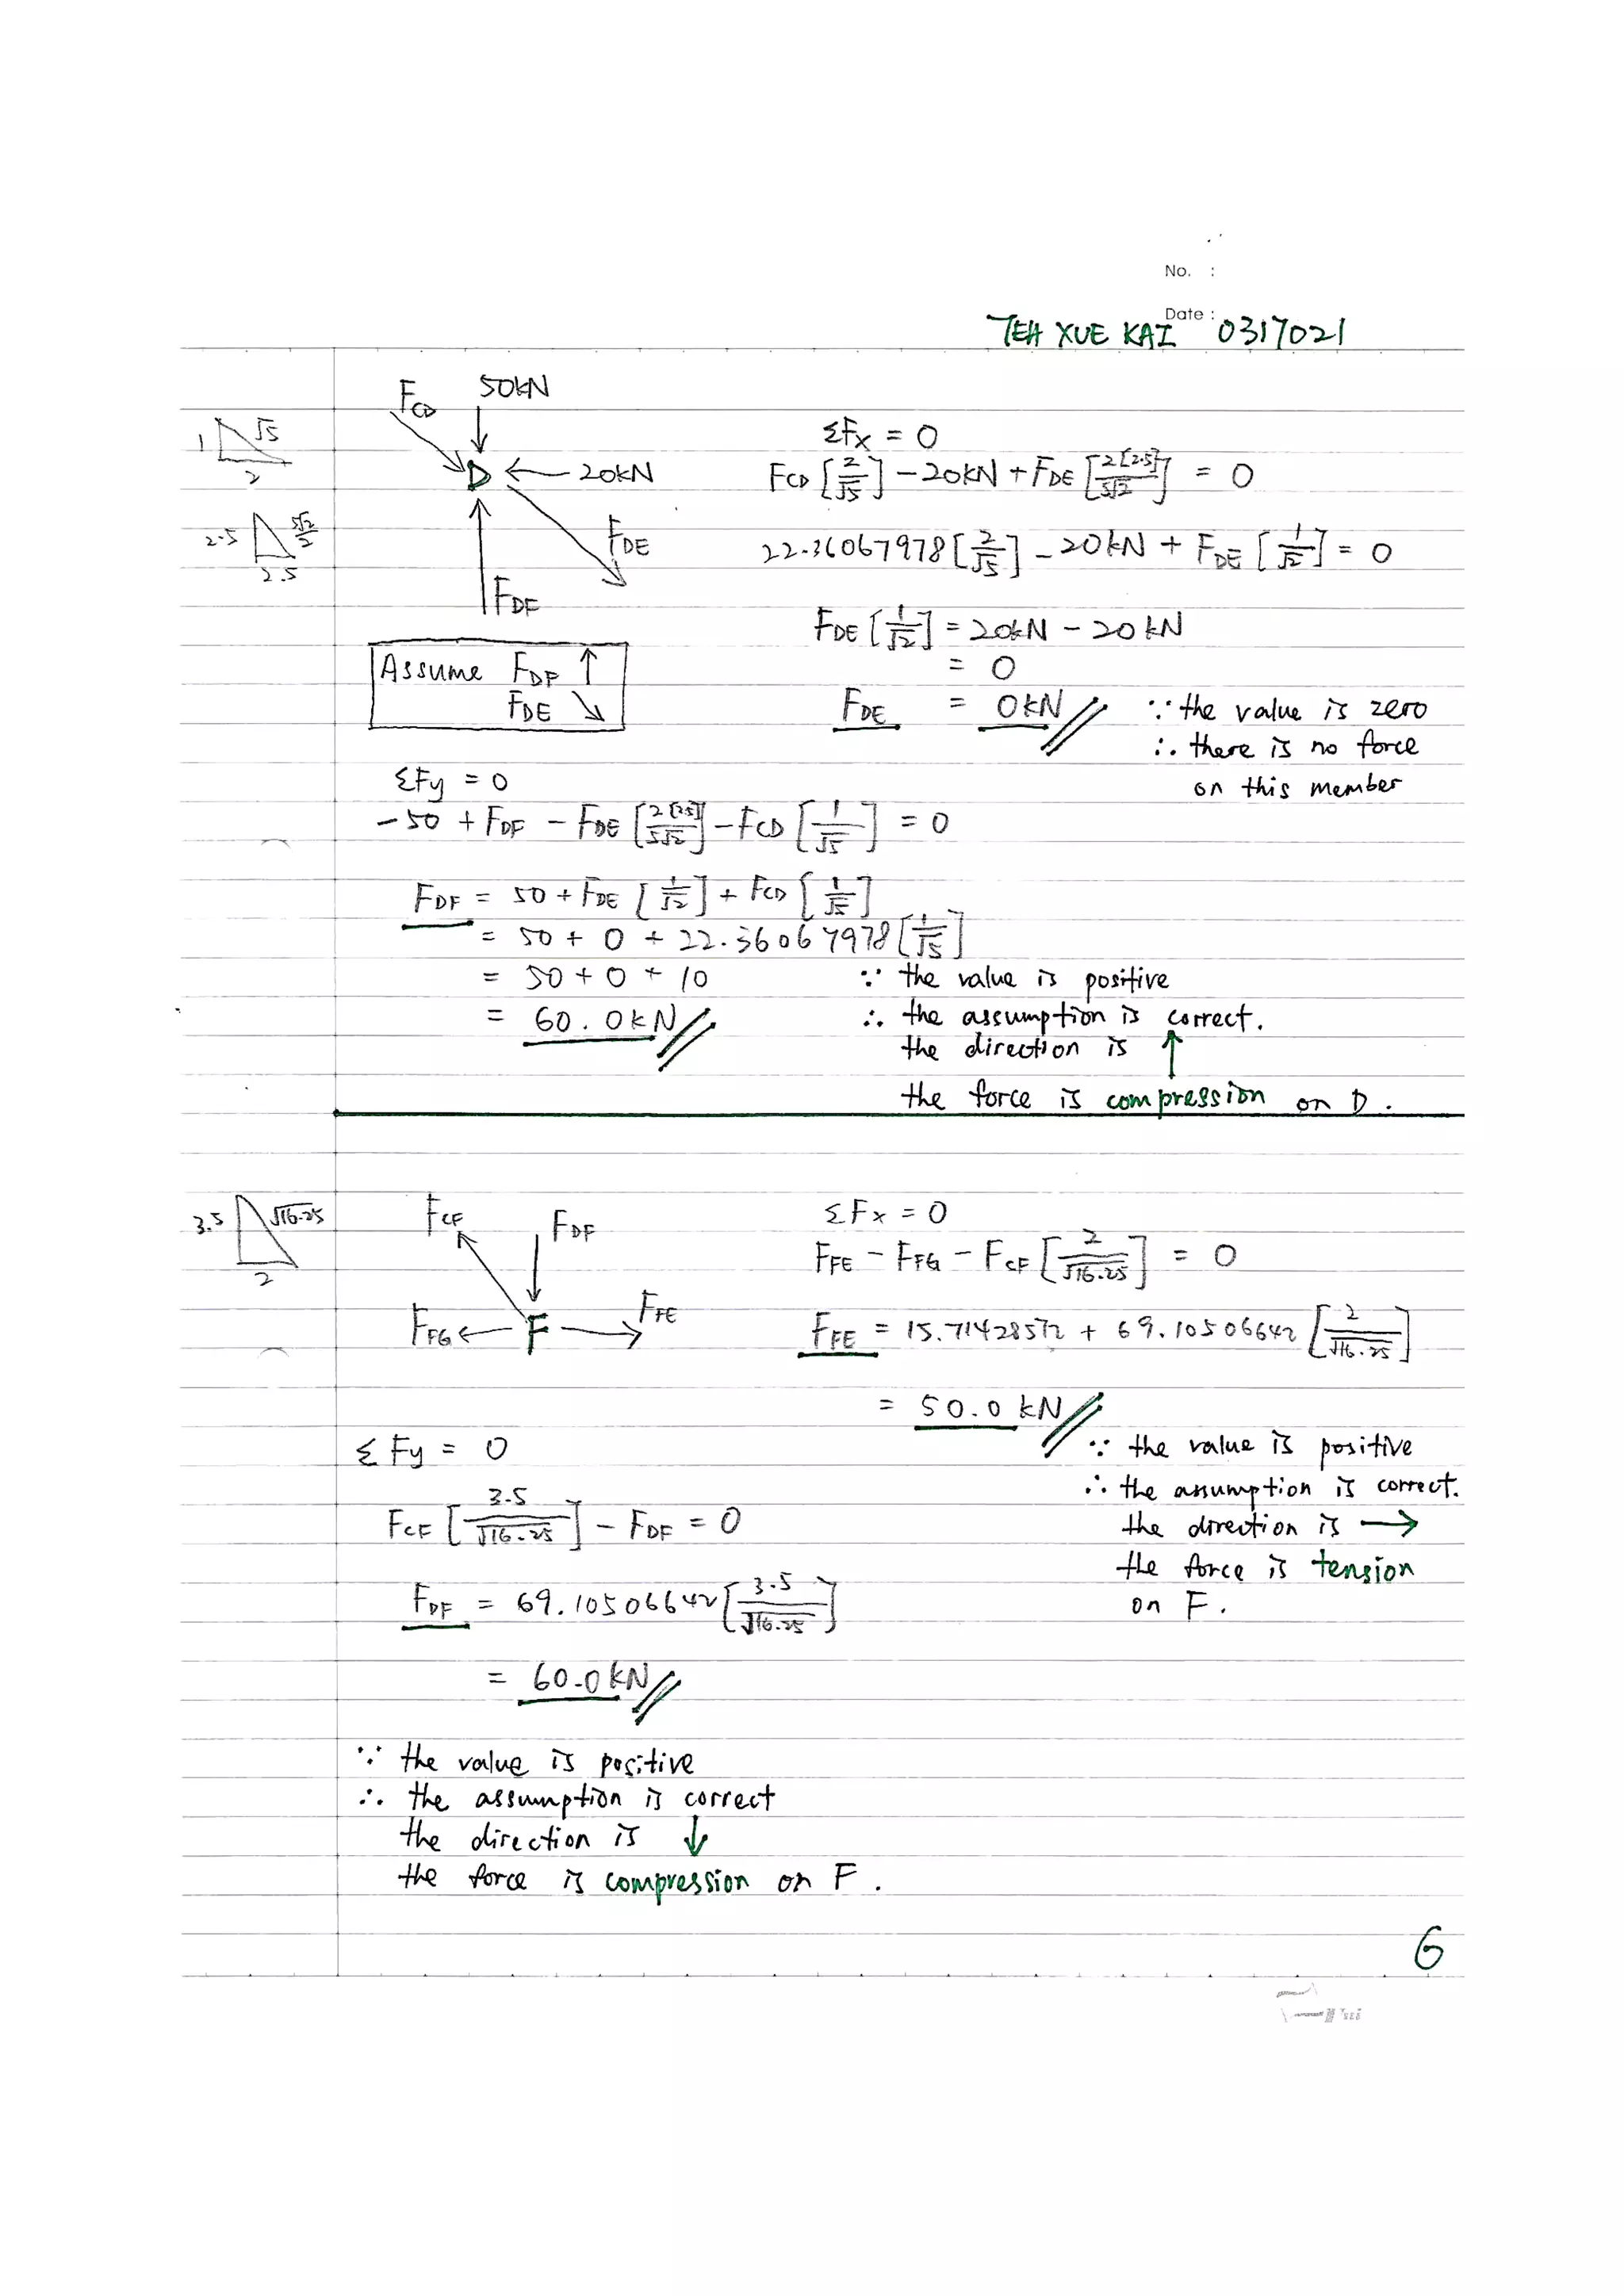 No. :
Date :
TEH XUE KAI 0317021
F_CD 50kN
1 √5
2
D ← 20kN
2.5 5√2/2
2.5
F_DE
F_DF
Assume F_DF ↑
F_DE ↘
ΣFx = 0
F_CD [2/√5] - 20kN + F_DE [2[2.5]/5√2] = 0
22.36067978 [2/√5] - 20kN + F_DE [1/√2] = 0
F_DE [1/√2] = 20kN - 20kN
= 0
F_DE = 0kN // ∵ the value is zero
∴ there is no force
on this member
ΣFy = 0
-50 + F_DF - F_DE [2[2.5]/5√2] - F_CD [1/√5] = 0
F_DF = 50 + F_DE [1/√2] + F_CD [1/√5]
= 50 + 0 + 22.36067978 [1/√5]
= 50 + 0 + 10 ∵ the value is positive
= 60.0kN // ∴ the assumption is correct.
the direction is ↑
the force is compression on D.
3.5 √16.25
2
F_CF F_DF
F_FG ← F → F_FE
ΣFx = 0
F_FE - F_FG - F_CF [2/√16.25] = 0
F_FE = 15.71428572 + 69.10506642 [2/√16.25]
= 50.0 kN //
∵ the value is positive
∴ the assumption is correct.
the direction is →
the force is tension
on F.
ΣFy = 0
F_CF [3.5/√16.25] - F_DF = 0
F_DF = 69.10506642 [3.5/√16.25]
= 60.0kN //
∵ the value is positive
∴ the assumption is correct
the direction is ↓
the force is compression on F.
6